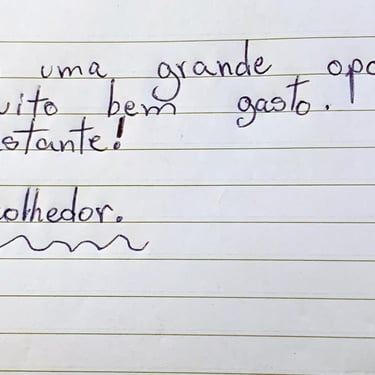 uma grande opo
uito bem gasto.
stante!
olhedor.